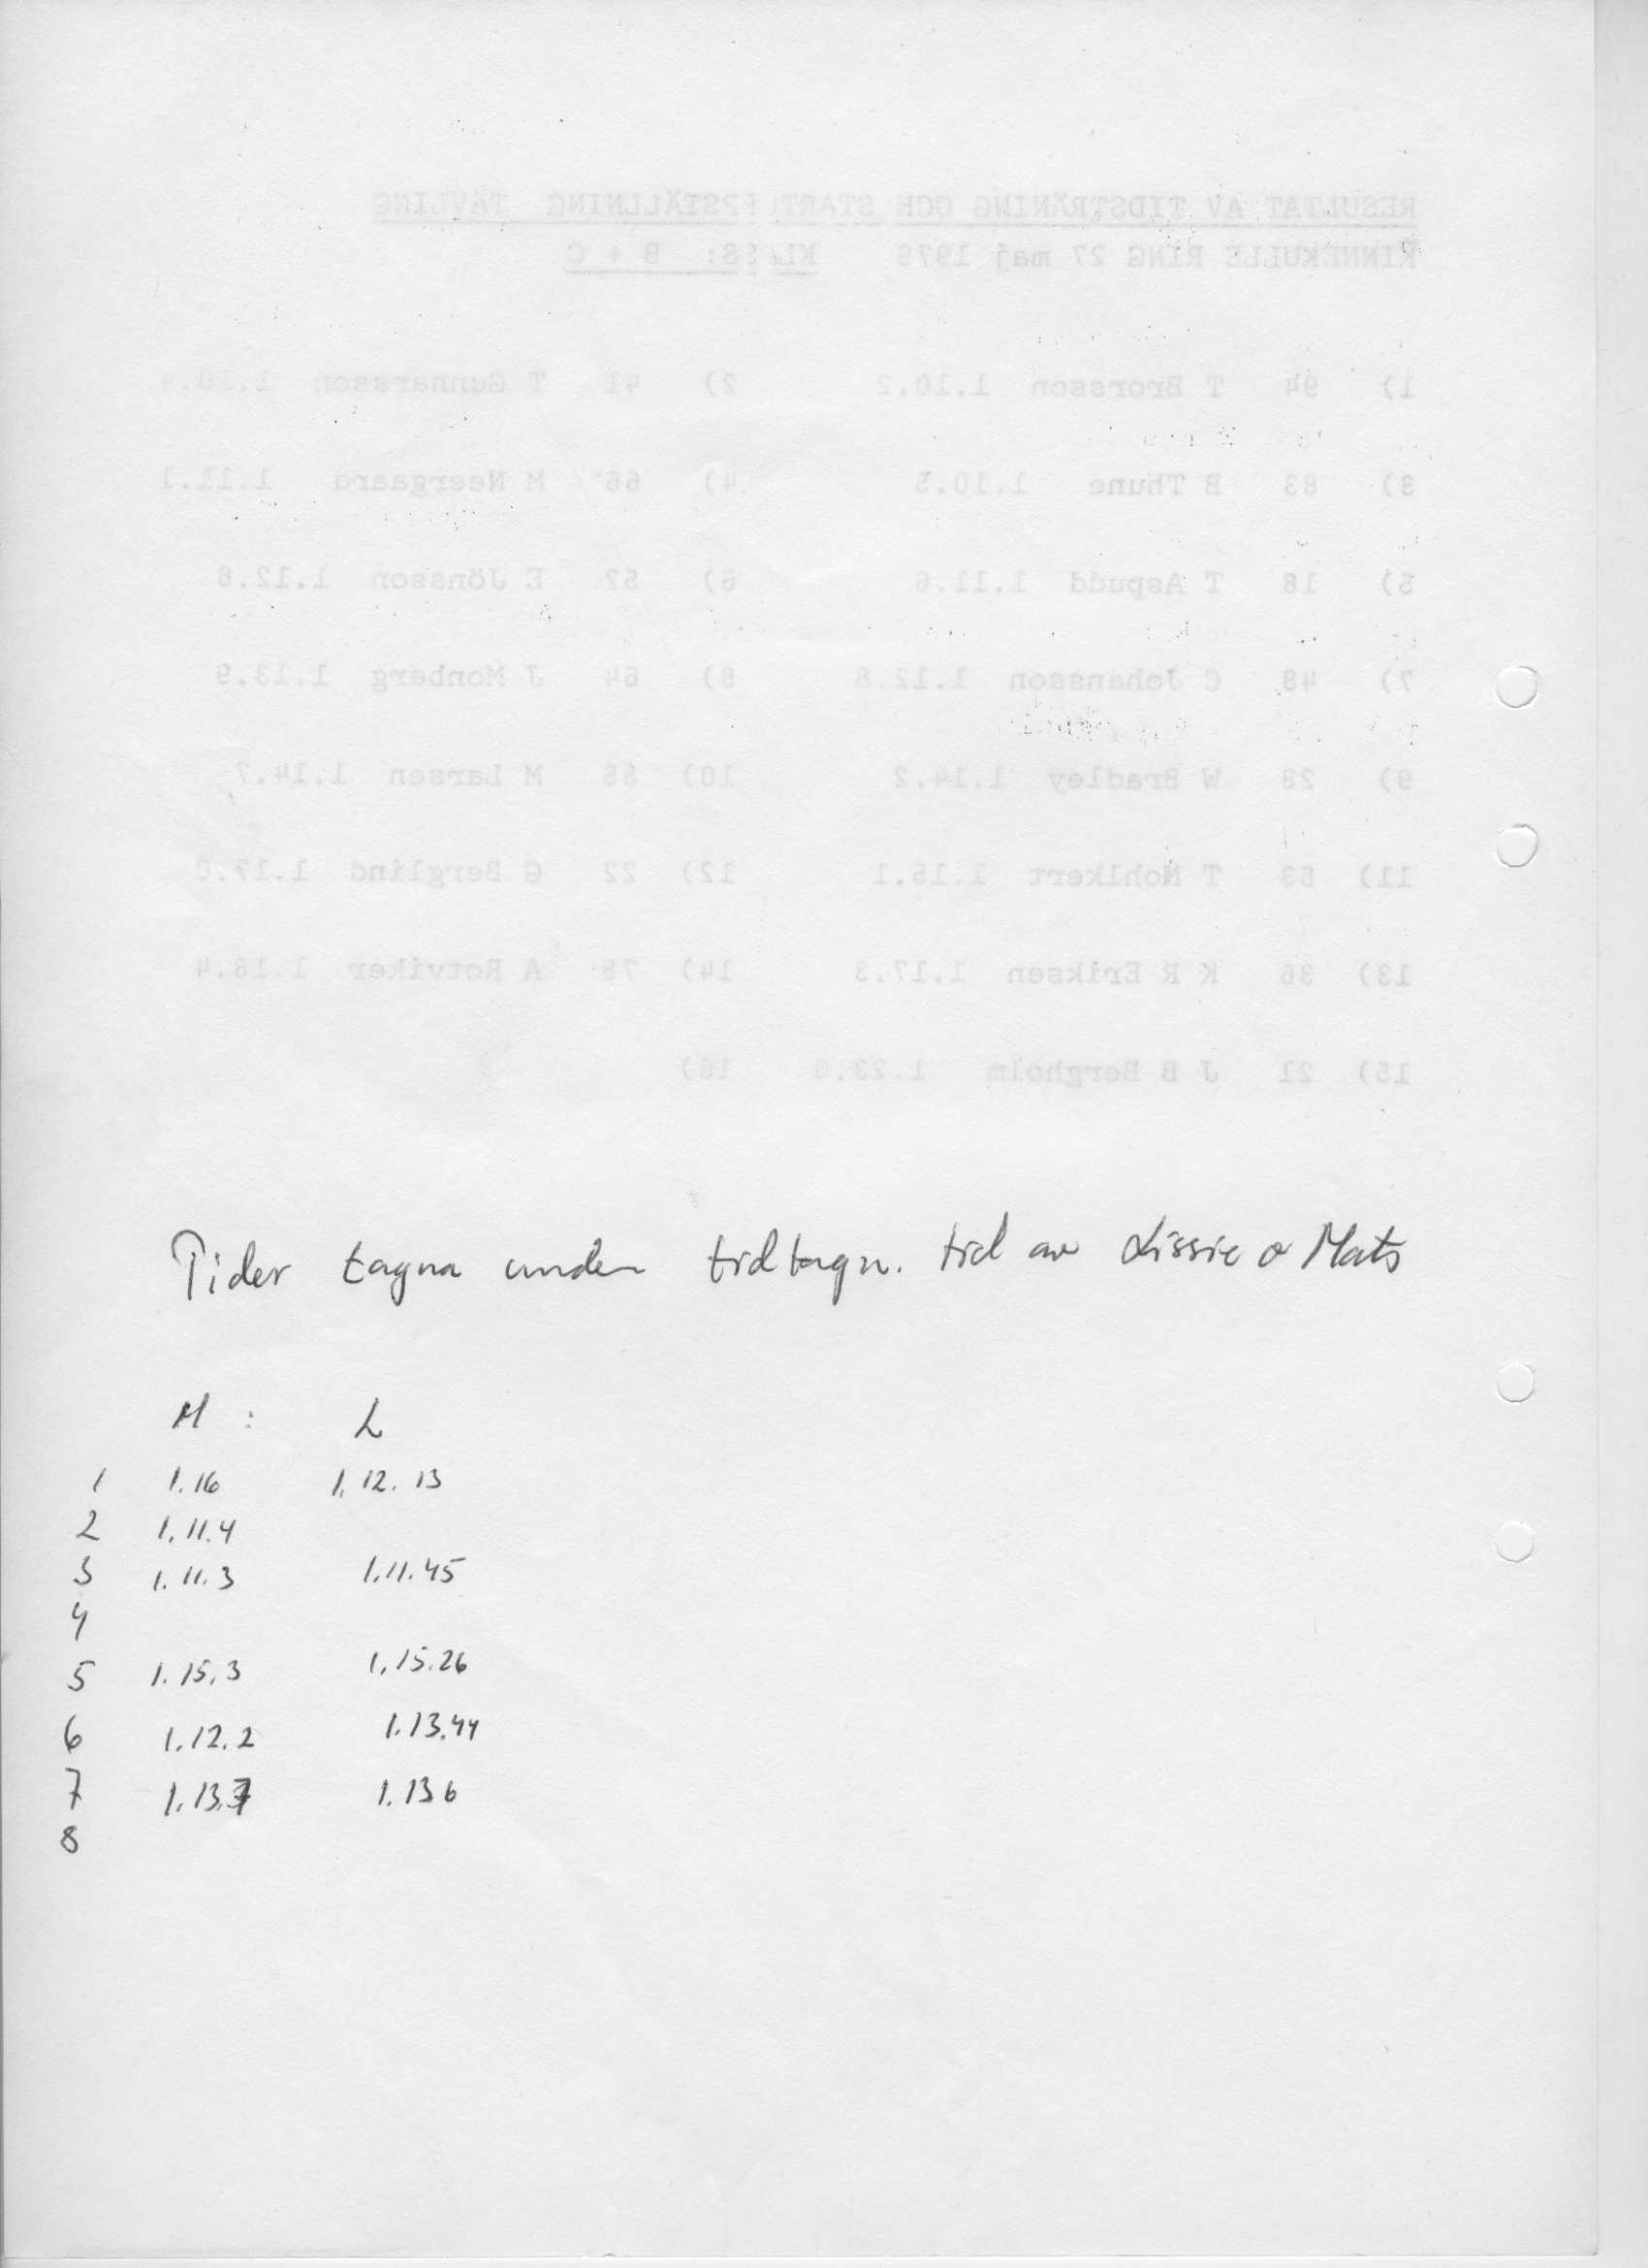 RESULTAT AV TIDSTRÄNING OCH STARTUPPSTÄLLNING TÄVLING
KINNEKULLE RING 27 maj 1979 KLASS: B + C
1) 94 T Brorsson 1.10.2 2) 41 T Gunnarsson 1.10.4
3) 83 B Thune 1.10.5 4) 66 M Neergaard 1.11.1
5) 18 T Aspudd 1.11.6 6) 52 E Jönsson 1.12.6
7) 48 C Johansson 1.12.8 8) 64 J Monberg 1.13.9
9) 28 W Bradley 1.14.2 10) 55 M Larsen 1.14.7
11) 53 T Nohlkert 1.15.1 12) 22 G Berglind 1.17.0
13) 36 K R Eriksen 1.17.3 14) 78 A Rotviker 1.18.4
15) 21 J B Bergholm 16)
Tider tagna under tidtagn. tid av Lissie o Mats
M : L
1 1.16 1.12.13
2 1.11.4
3 1.11.3 1.11.45
4
5 1.15.3 1.15.26
6 1.12.2 1.13.44
7 1.13.7 1.13 6
8